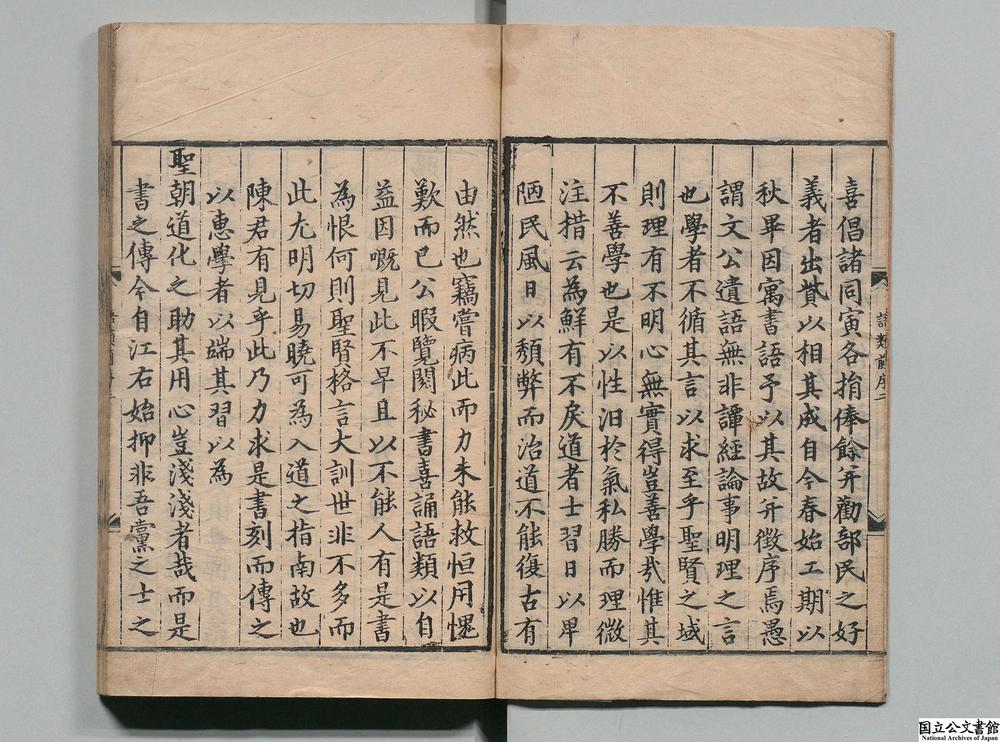 喜倡諸同寅各捐俸餘并勸部民之好
義者出貲以相其成自今春始工期以
秋畢因寓書語予以其故并徵序焉愚
謂文公遺語無非譚經論事明理之言
也學者不循其言以求至乎聖賢之域
則理有不明心無實得豈善學㢤惟其
不善學也是以性汨於氣私勝而理微
注措云為鮮有不戾道者士習日以卑
陋民風日以頽弊而治道不能復古有
由然也竊嘗病此而力未能救恒用愧
歎而已公暇覽閱秘書喜誦語類以自
益因嘅見此不早且以不能人有是書
為恨何則聖賢格言大訓世非不多而
此尤明切易曉可為入道之指南故也
陳君有見乎此乃力求是書刻而傳之
以惠學者以端其習以為
聖朝道化之助其用心豈淺淺者哉而是
書之傳今自江右始抑非吾黨之士之
国立公文書館
National Archives of Japan